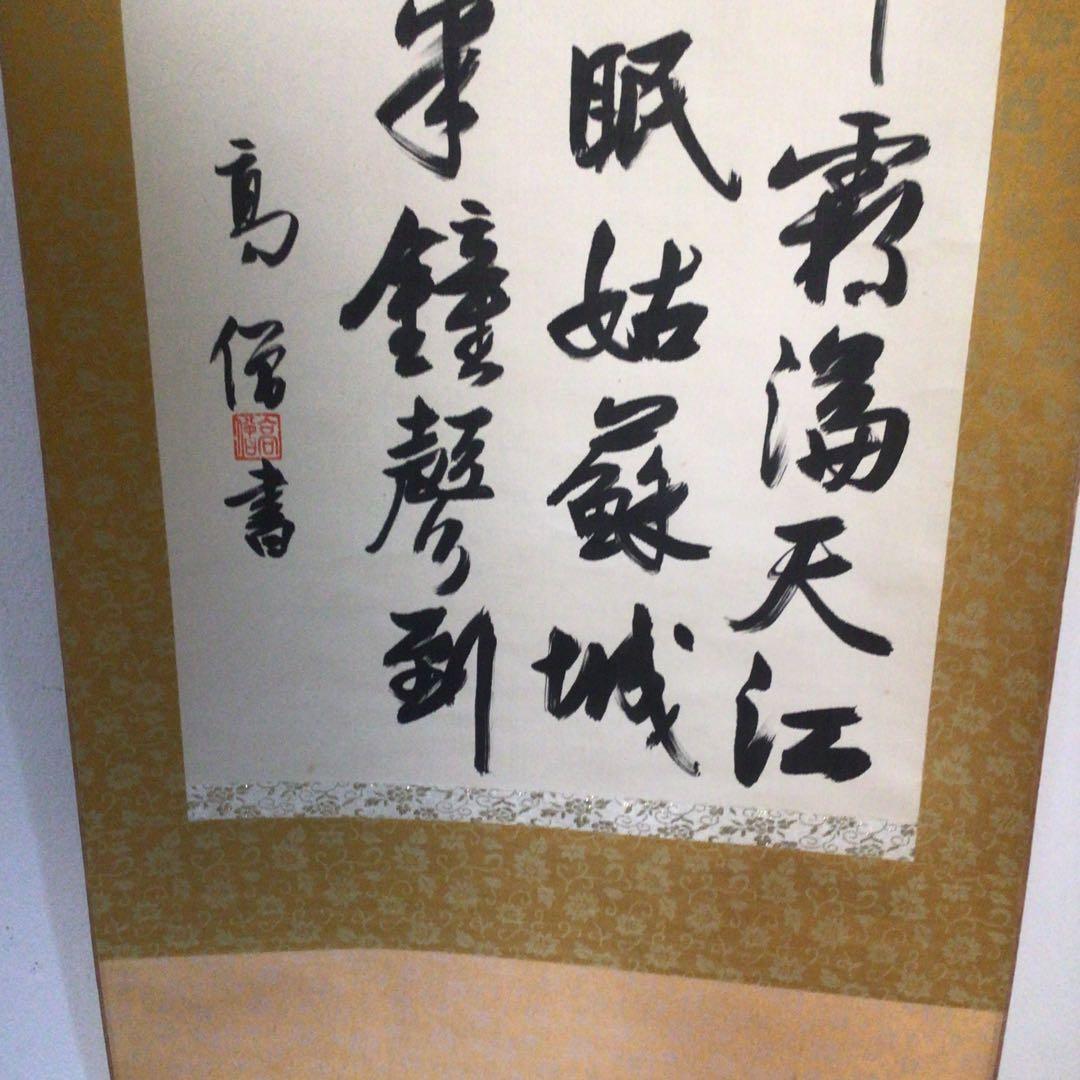 霜滿天江
眠姑蘇城
半鐘聲到
高僧書